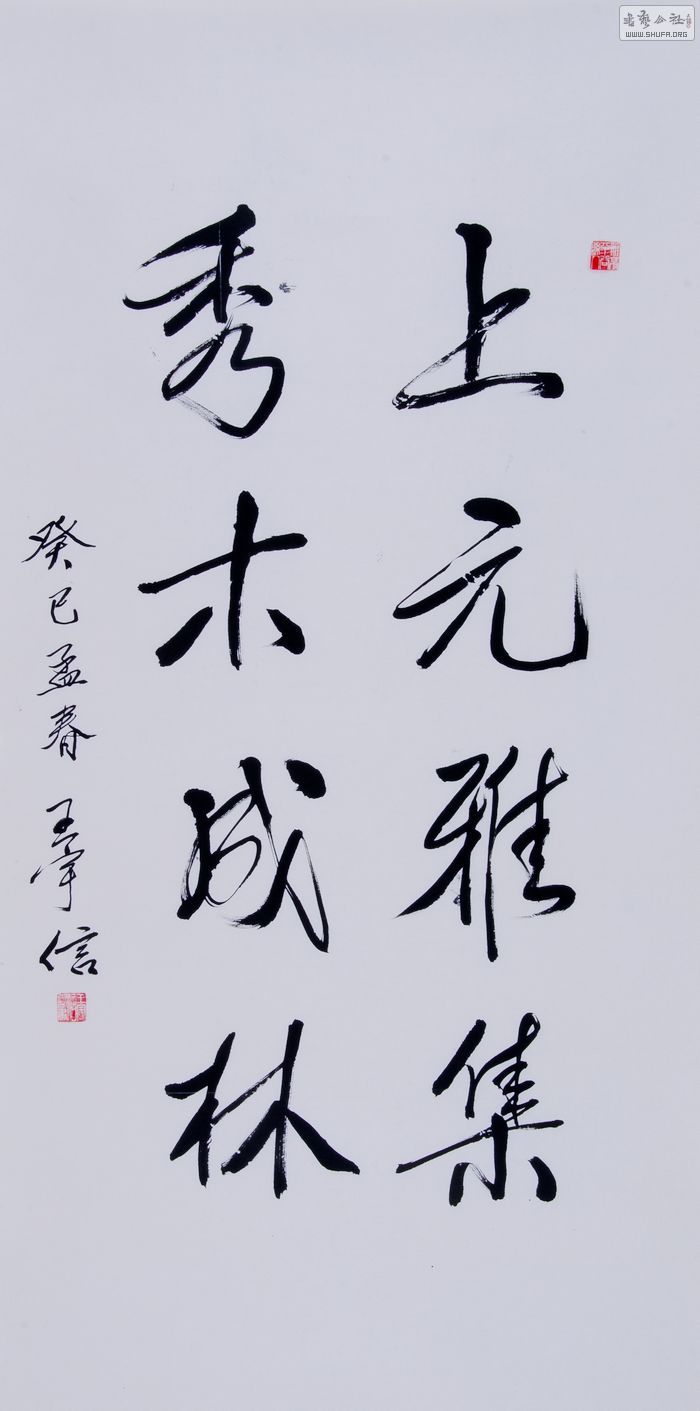 上元雅集
秀木成林
癸巳孟春 王宇信
書藝公社
WWW.SHUFA.ORG